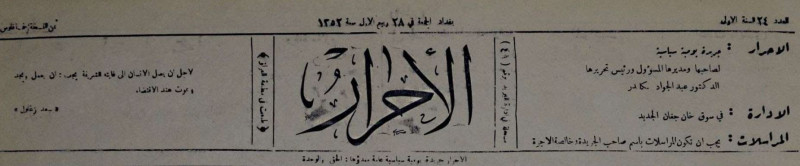 العدد ٢٤ السنة الاولى
بغداد الجمعة في ٢٨ ربيع الاول سنة ١٣٥٢
ثمن النسخة
الاحرار : جريدة يومية سياسية
لصاحبها ومديرها المسؤول ورئيس تحريرها
الدكتور عبد الجواد
الادارة : في سوق خان جغان الجديد
المراسلات : يجب ان تكون المراسلات باسم صاحب الجريدة وخالصة الاجرة
الأحرار
لاجل ان يصل الانسان الى غايته الشريفة يجب : ان يعمل ويجد
ويموت عند الاقتضاء
« سعد زغلول »
الاحرار جريدة يومية سياسية عامة مبدؤها : الحق والوحدة